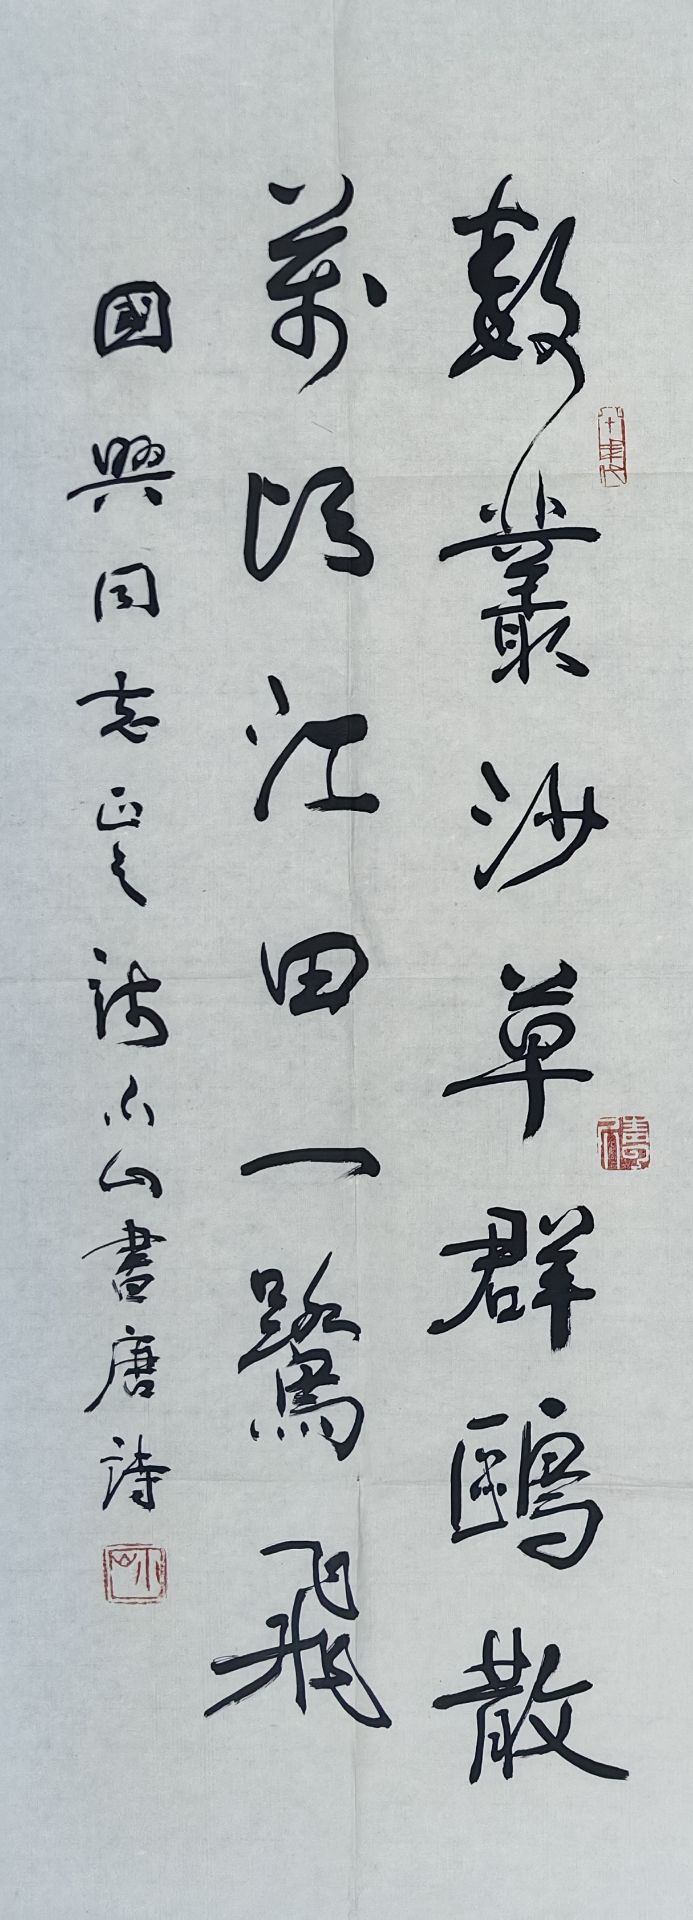 數叢沙草群鷗散
萬頃江田一鷺飛
國興同志正之 小山書唐詩
小山